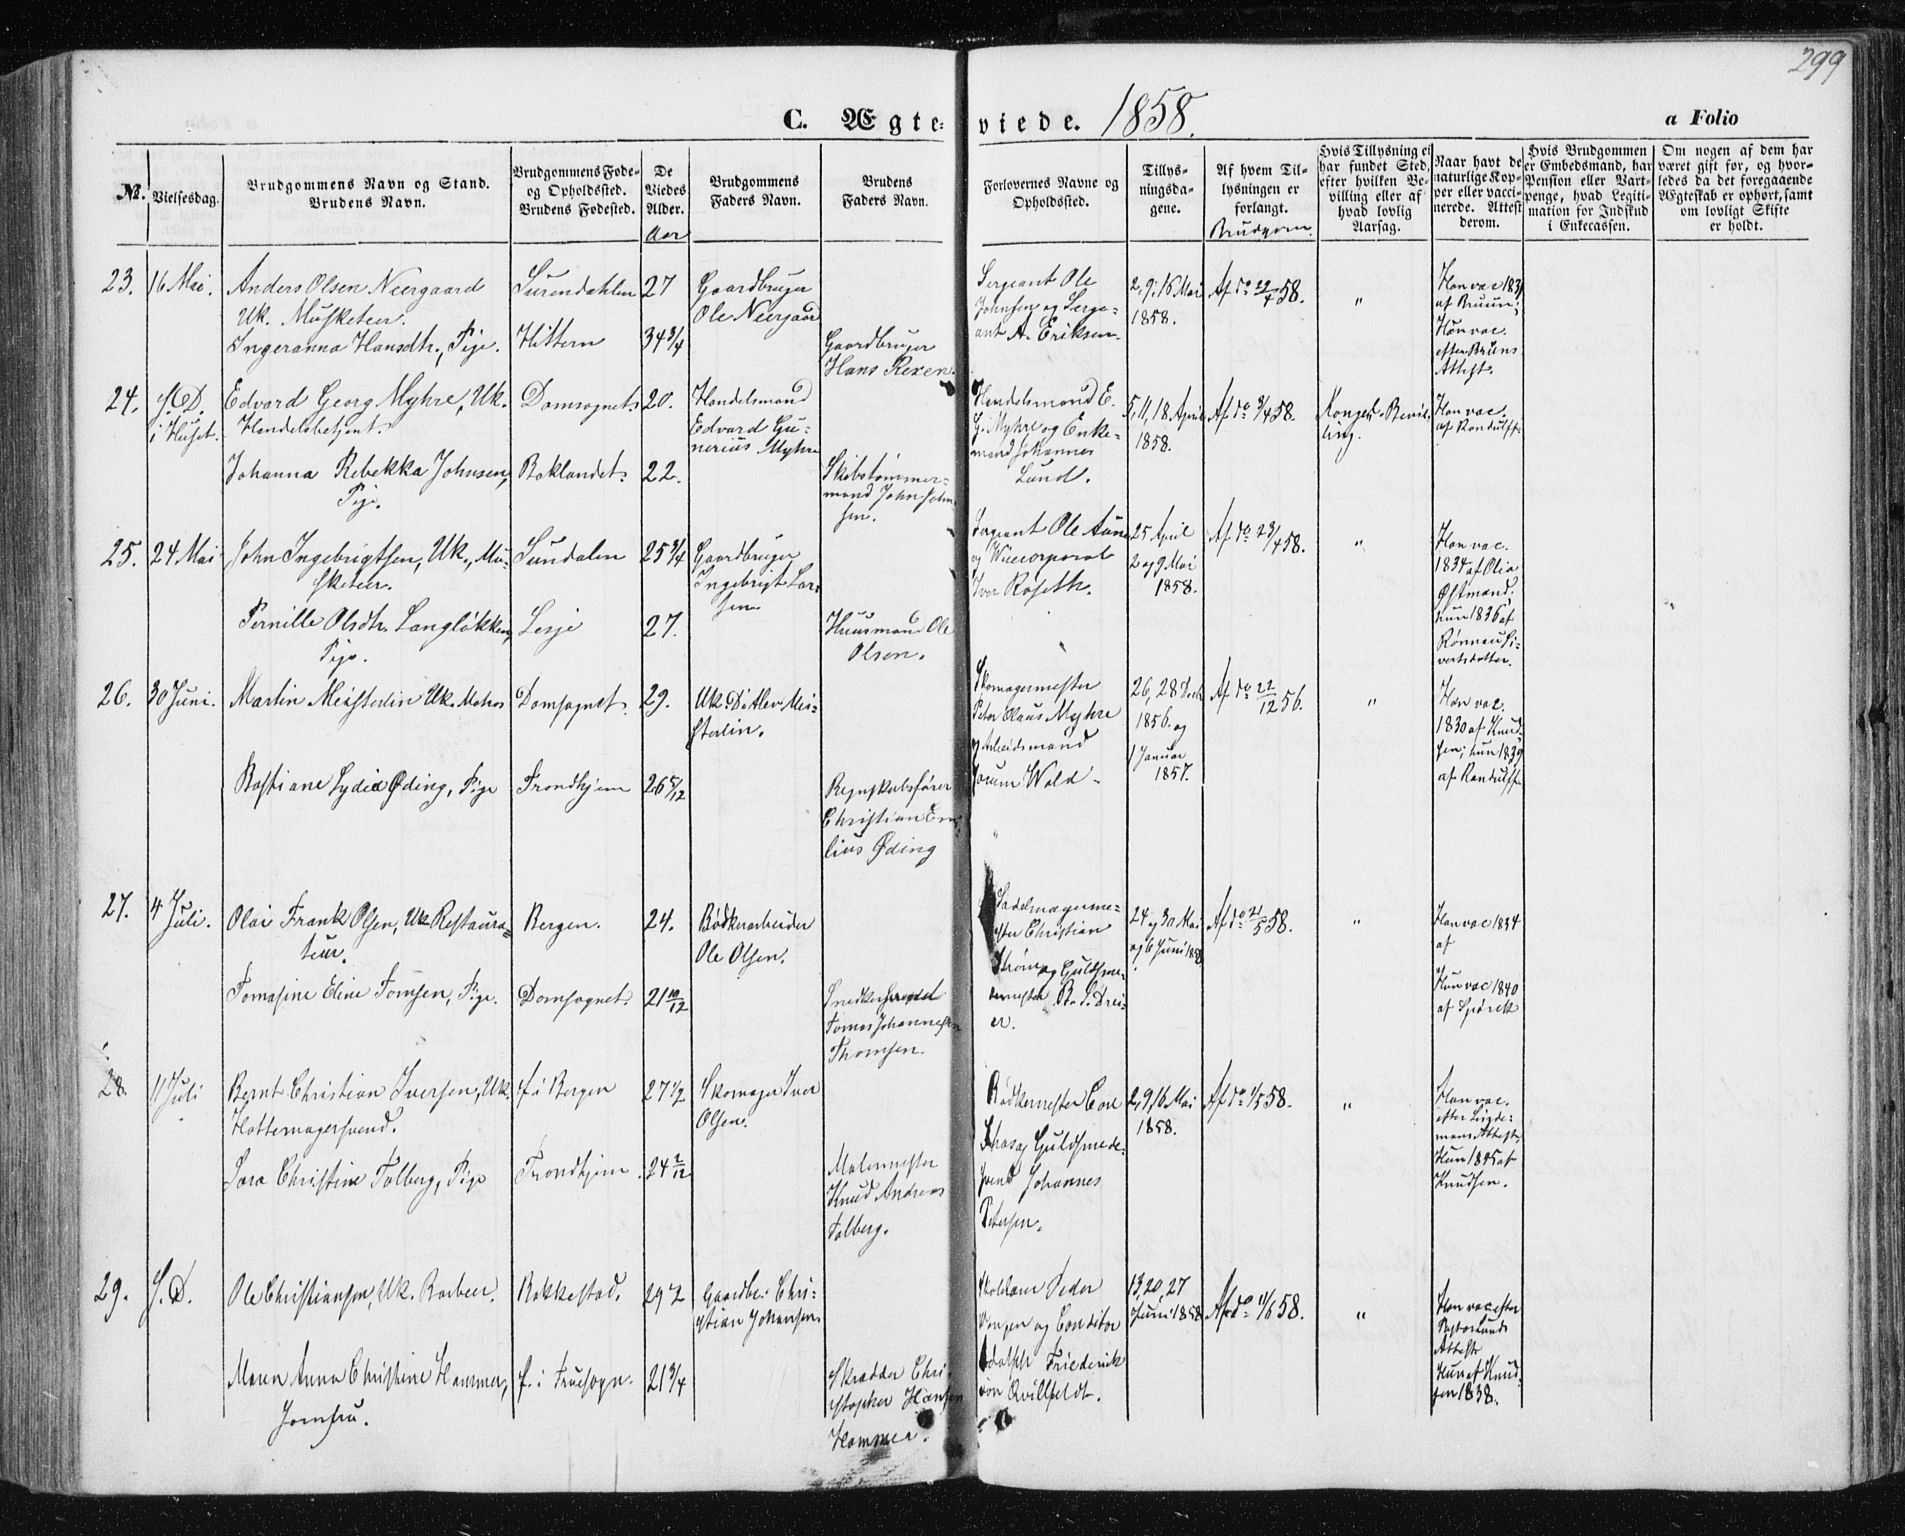 299
C. Ægte-viede. 1858.
a Folio
№.
Vielsesdag.
Brudgommens Navn og Stand.
Brudens Navn.
Brudgommens Føde-
og Opholdssted.
Brudens Fødested.
De
Viedes
Alder.
Aar
Brudgommens
Faders Navn.
Brudens
Faders Navn.
Forlovernes Navne og
Opholdssted.
Tillys-
ningsda-
gene.
Af hvem Til-
lysningen er
forlangt.
Brudgom.
Hvis Tillysning ei
har fundet Sted,
efter hvilken Be-
villing eller af
hvad lovlig
Aarsag.
Naar havt de
naturlige Kop-
per eller vacci-
nerede. Attest
derom.
Hvis Brudgommen
er Embedsmand, har
Pension eller Vart-
penge, hvad Legiti-
mation for Indskud
i Enkecassen.
Om nogen af dem har
været gift før, og hvor-
ledes da det foregaaende
Ægteskab er ophørt, samt
om lovligt Skifte
er holdt.
23. 16 Mai.
Anders Olsen Neergaard
Uk. Musketeer.
Ingeranna Hansdtr., Pige.
Surendahlen
Hittern
27
34 3/4
Gaardbruger
Ole Neergaard
Gaardbruger
Hans Rexen.
Sergeant Ole
Johnsen og Serge-
ant A. Eriksen.
2, 9, 16 Mai
1858.
Af do 22/4 58.
"
Han vac. 1831
af Bruun;
Hun vac.
efter Bruns
Attest.
24. S. D.
i Huset.
Edvard Georg Myhre, Uk.
Handelsbetjent.
Johanna Rebekka Johnsen,
Pige.
Domsognet
Baklandet.
20.
22.
Handelsmand
Edvard Gu-
nerius Myhre
Skibstømmer-
mand John John-
sen.
Handelsmand E.
G. Myhre og Enke-
mand Johannes
Lund.
5, 11, 18 April
1858.
Af do 3/4 58.
Kongel. Bevil-
ling.
Han vac.
af Randulff
25. 24 Mai
John Ingebrigtsen, Uk., Mu-
sketeer.
Pernille Olsdtr. Langløkken,
Pige.
Sundalen
Lesje
25 3/4
27.
Gaardbruger
Ingebrigt Lar-
sen.
Huusmand Ole
Olsen.
Sergeant Ole Aune
og Vicecorporal
Iver Roseth.
25 April
2 og 9 Mai
1858.
Af do 23/4 58.
"
Han vac.
1834 af Olia
Østmand,
hun 1836 af
Rønnau Si-
vertsdatter.
26. 30 Juni.
Martin Meisterlin Uk. Matros
Bastiane Lydia Øding, Pige
Domsognet.
Trondhjem
29.
26 5/12
Uk. Ditlev Mei-
sterlin.
Regnskabsfører
Christian Emi-
lius Øding
Skomagermester
Peter Olaus Myhre
og Arbeidsmand
Jorum Wold.
26, 28 Decb
1856 og
1 Januar
1857.
Af do 22/12 56.
"
Han vac.
1830 af Knud-
sen; hun 1839
af Randulff
27. 4 Juli.
Olai Frank Olsen, Uk. Restaura-
teur.
Tomasine Eline Tomsen, Pige.
Bergen.
Domsognet.
24.
21 10/12
Bødkerarbeider
Ole Olsen.
Snedkersvend
Tomas Johannesen
Thomsen.
Sadelmagerme-
ster Christian
Strøm og Guldsme-
demester B. d. Drei-
er.
24 og 30 Mai
og 6 Juni 1858
Af do 21/5 58.
"
Han vac 1834
af
Hun vac 1840
af Spørck
28. 11 Juli
Bernt Christian Iversen, Uk.
Hattemagersvend.
Sara Christine Tolberg, Pige
f. i Bergen
Trondhjem
27 1/2
24 2/12
Skomager Iver
Olsen.
Malermester
Knud Andreas
Tolberg.
Bødkermester
Guldsmede-
svend Johannes
Petersen.
2, 9, 16 Mai
1858.
Af do 1/5 58.
"
Han vac.
efter Linde-
mans Attest
Hun 1845 af
Knudsen.
29. S. D.
Ole Christiansen, Uk. Barbeer.
Maren Anna Christine Hammer,
Jomfru.
Rakkestad.
f. i Fruesogn.
29 1/2
21 3/4
Gaardbr. Chri-
stian Johansen
Skrædder Chri-
stopher Hansen
Hammer.
Peder
og Conditor
Adolph Friederich
von Qvillfeldt.
13, 20, 27
Juni 1858
Af do 11/6 58.
"
Han vac efter
Attest
Hun af Knud-
sen 1838.